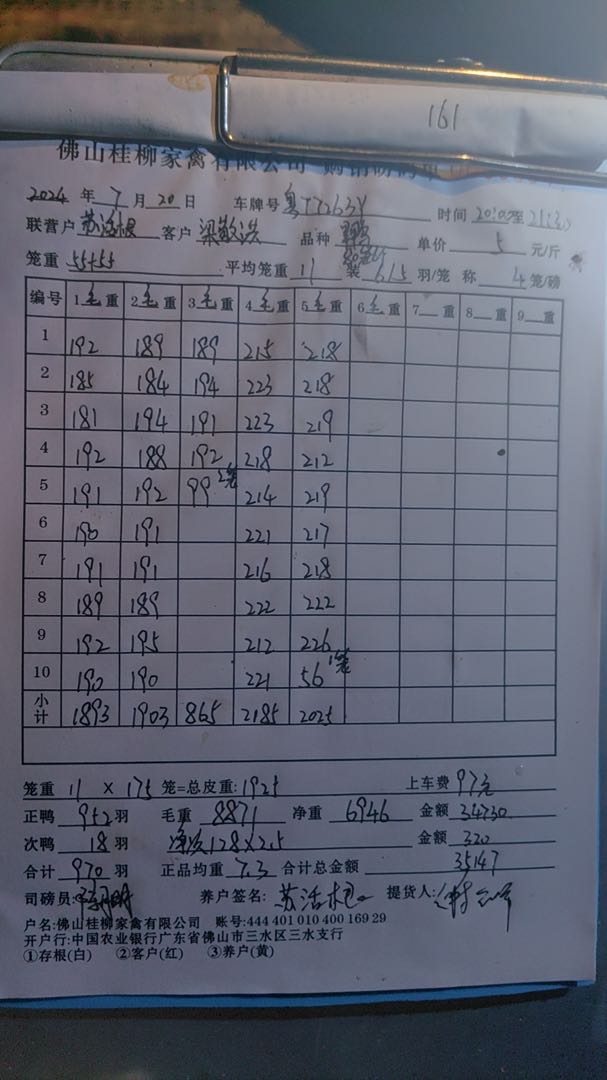 161
佛山桂柳家禽有限公司
2024 年 7 月 20 日 车牌号 粤T7263Y 时间 20:00至21:30
联营户 苏活根 客户 梁敏洪 品种 单价 5 元/斤
笼重 55+55 平均笼重 11 装 6/5 羽/笼 称 4 笼/磅
编号 1毛重 2毛重 3毛重 4毛重 5毛重 6毛重 7__重 8__重 9__重
1 192 189 189 215 218
2 185 184 194 223 218
3 181 194 191 223 219
4 192 188 192 218 212
5 191 192 99 2笼 214 219
6 190 191 221 217
7 191 191 216 218
8 189 189 222 222
9 192 195 212 226
10 190 190 221 56 1笼
小计 1893 1903 865 2185 2025
笼重 11 × 175 笼=总皮重: 1925 上车费 97元
正鸭 952 羽 毛重 8871 净重 6946 金额 34730
次鸭 18 羽 净次128×2.5 金额 320
合计 970 羽 正品均重 7.3 合计总金额 35147
司磅员: 养户签名: 苏活根 提货人:
户名:佛山桂柳家禽有限公司 账号:444 401 010 400 169 29
开户行:中国农业银行广东省佛山市三水区三水支行
①存根(白) ②客户(红) ③养户(黄)